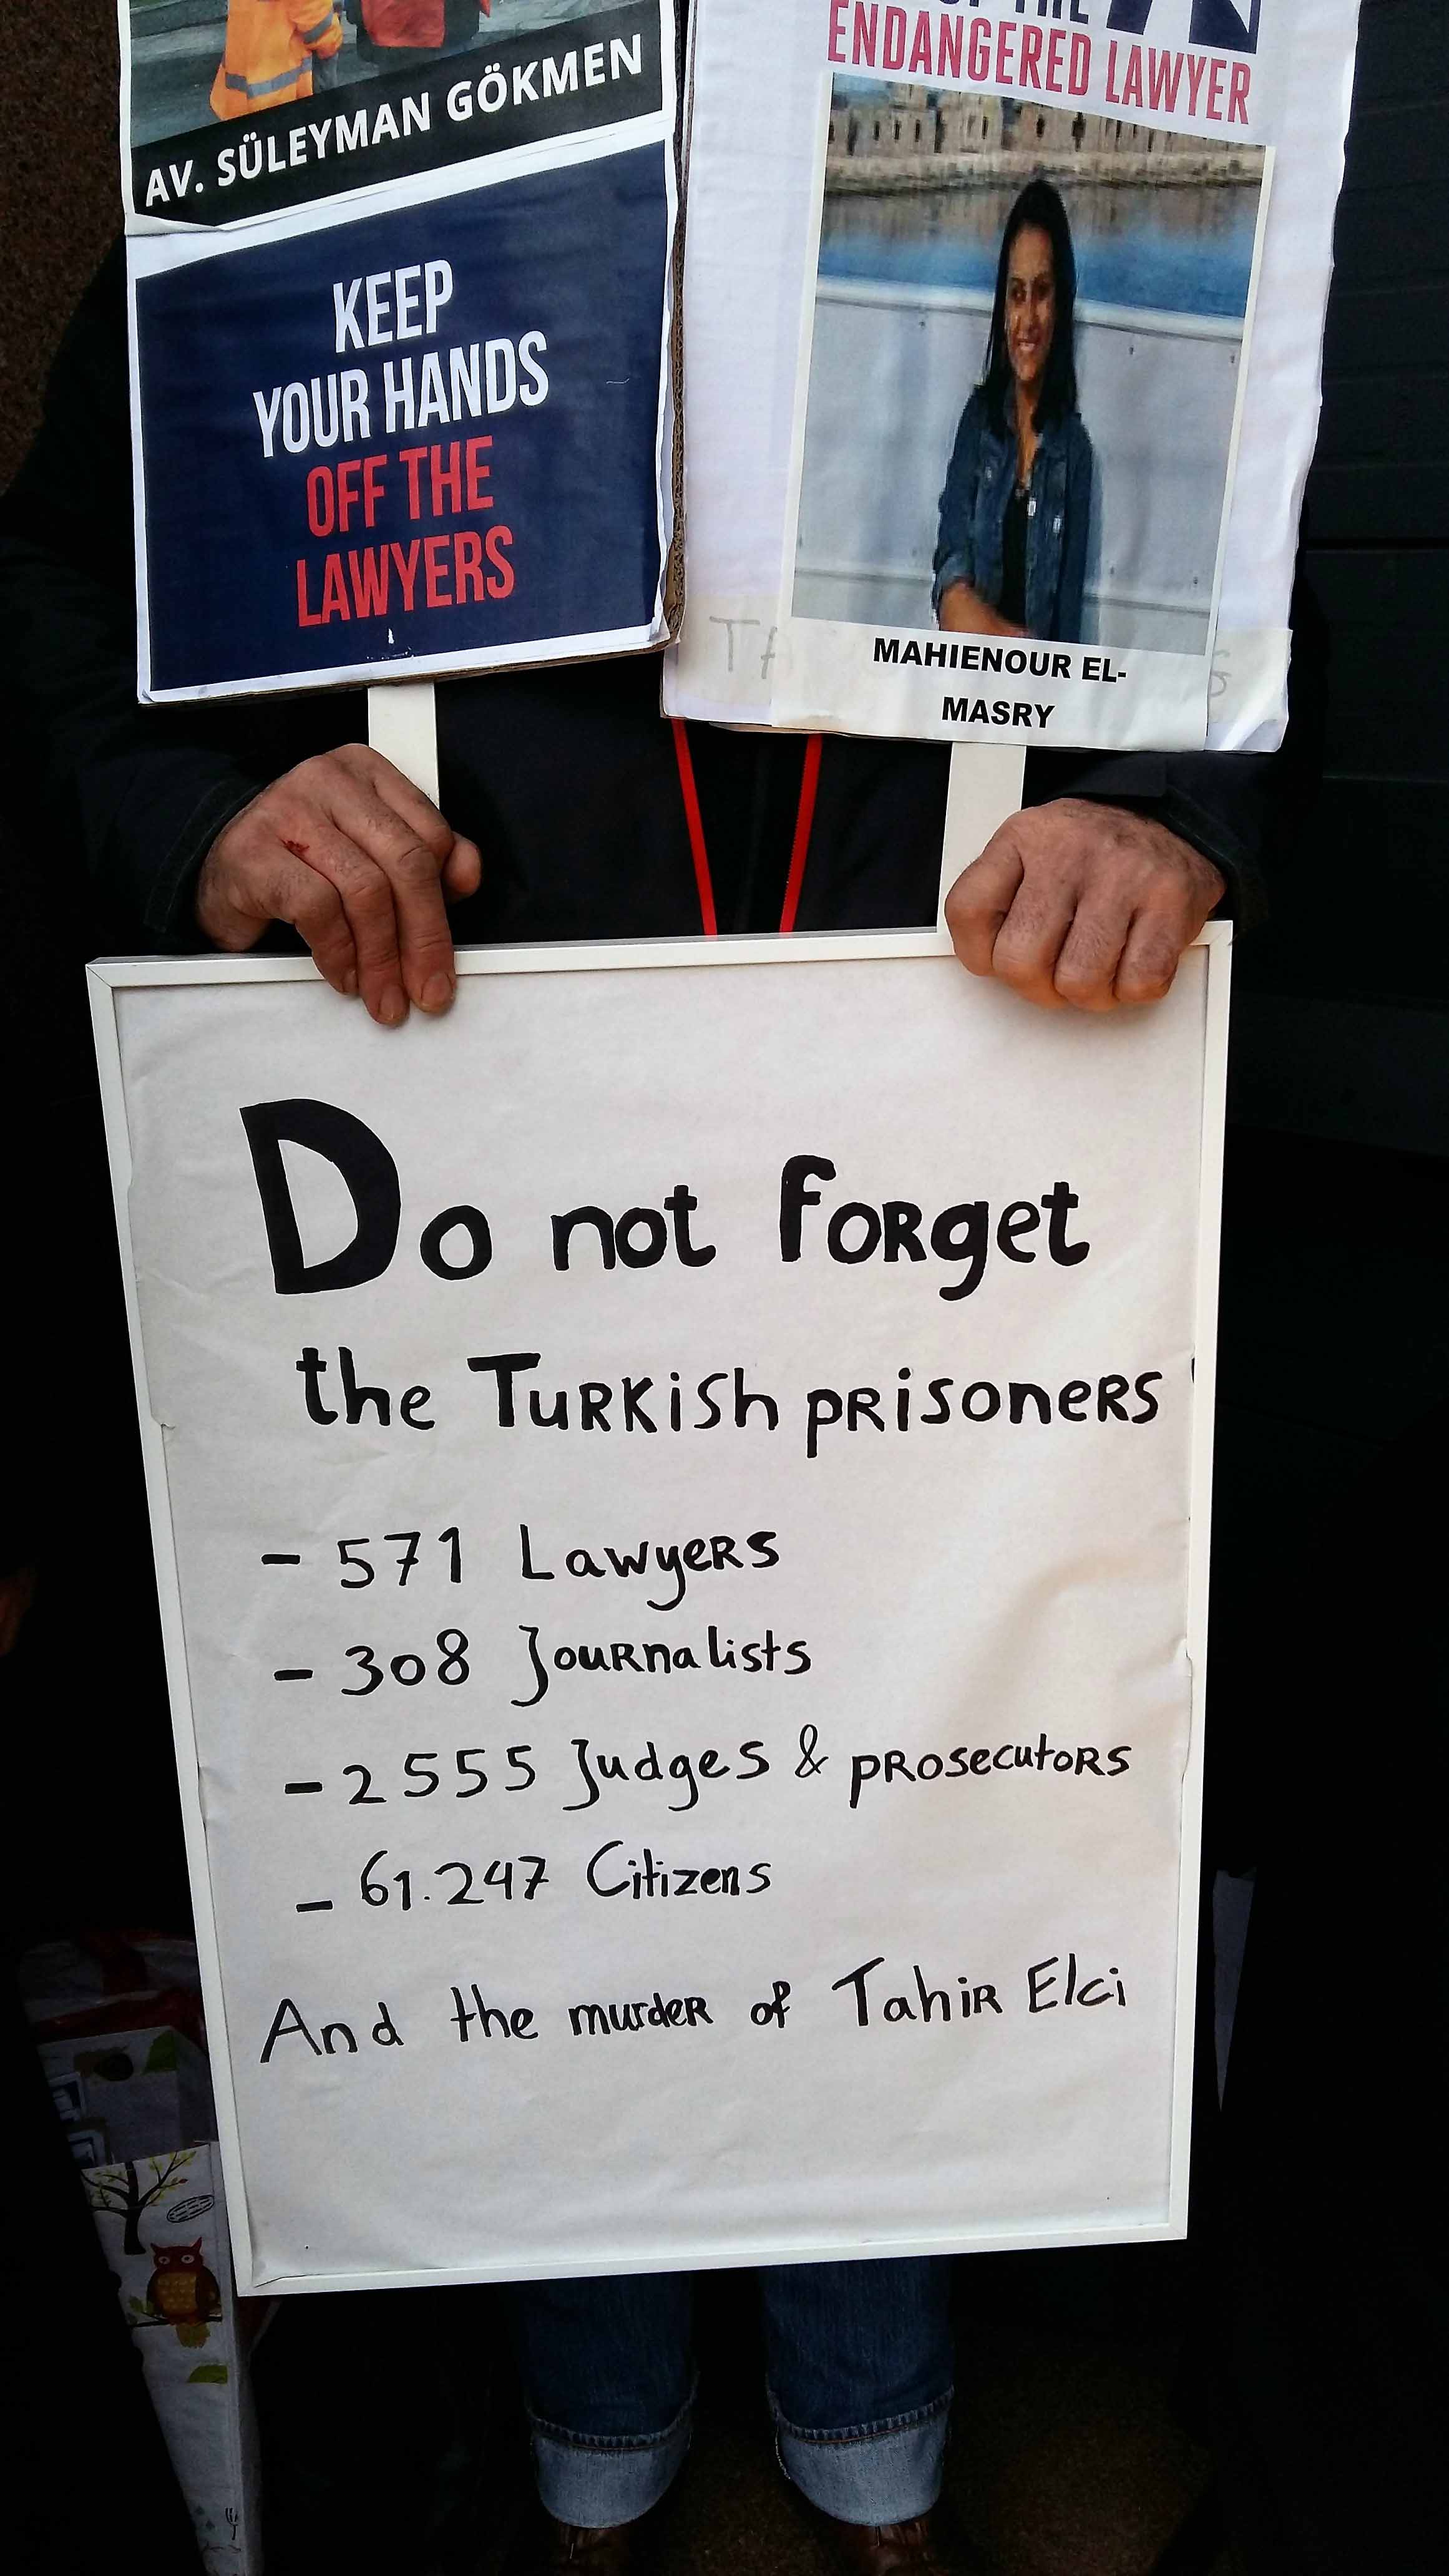 AV. SÜLEYMAN GÖKMEN
KEEP
YOUR HANDS
OFF THE
LAWYERS
OF THE
ENDANGERED LAWYER
MAHIENOUR EL-
MASRY
Do not forget
the Turkish prisoners
- 571 Lawyers
- 308 Journalists
- 2555 Judges & prosecutors
- 61.247 Citizens
And the murder of Tahir Elci